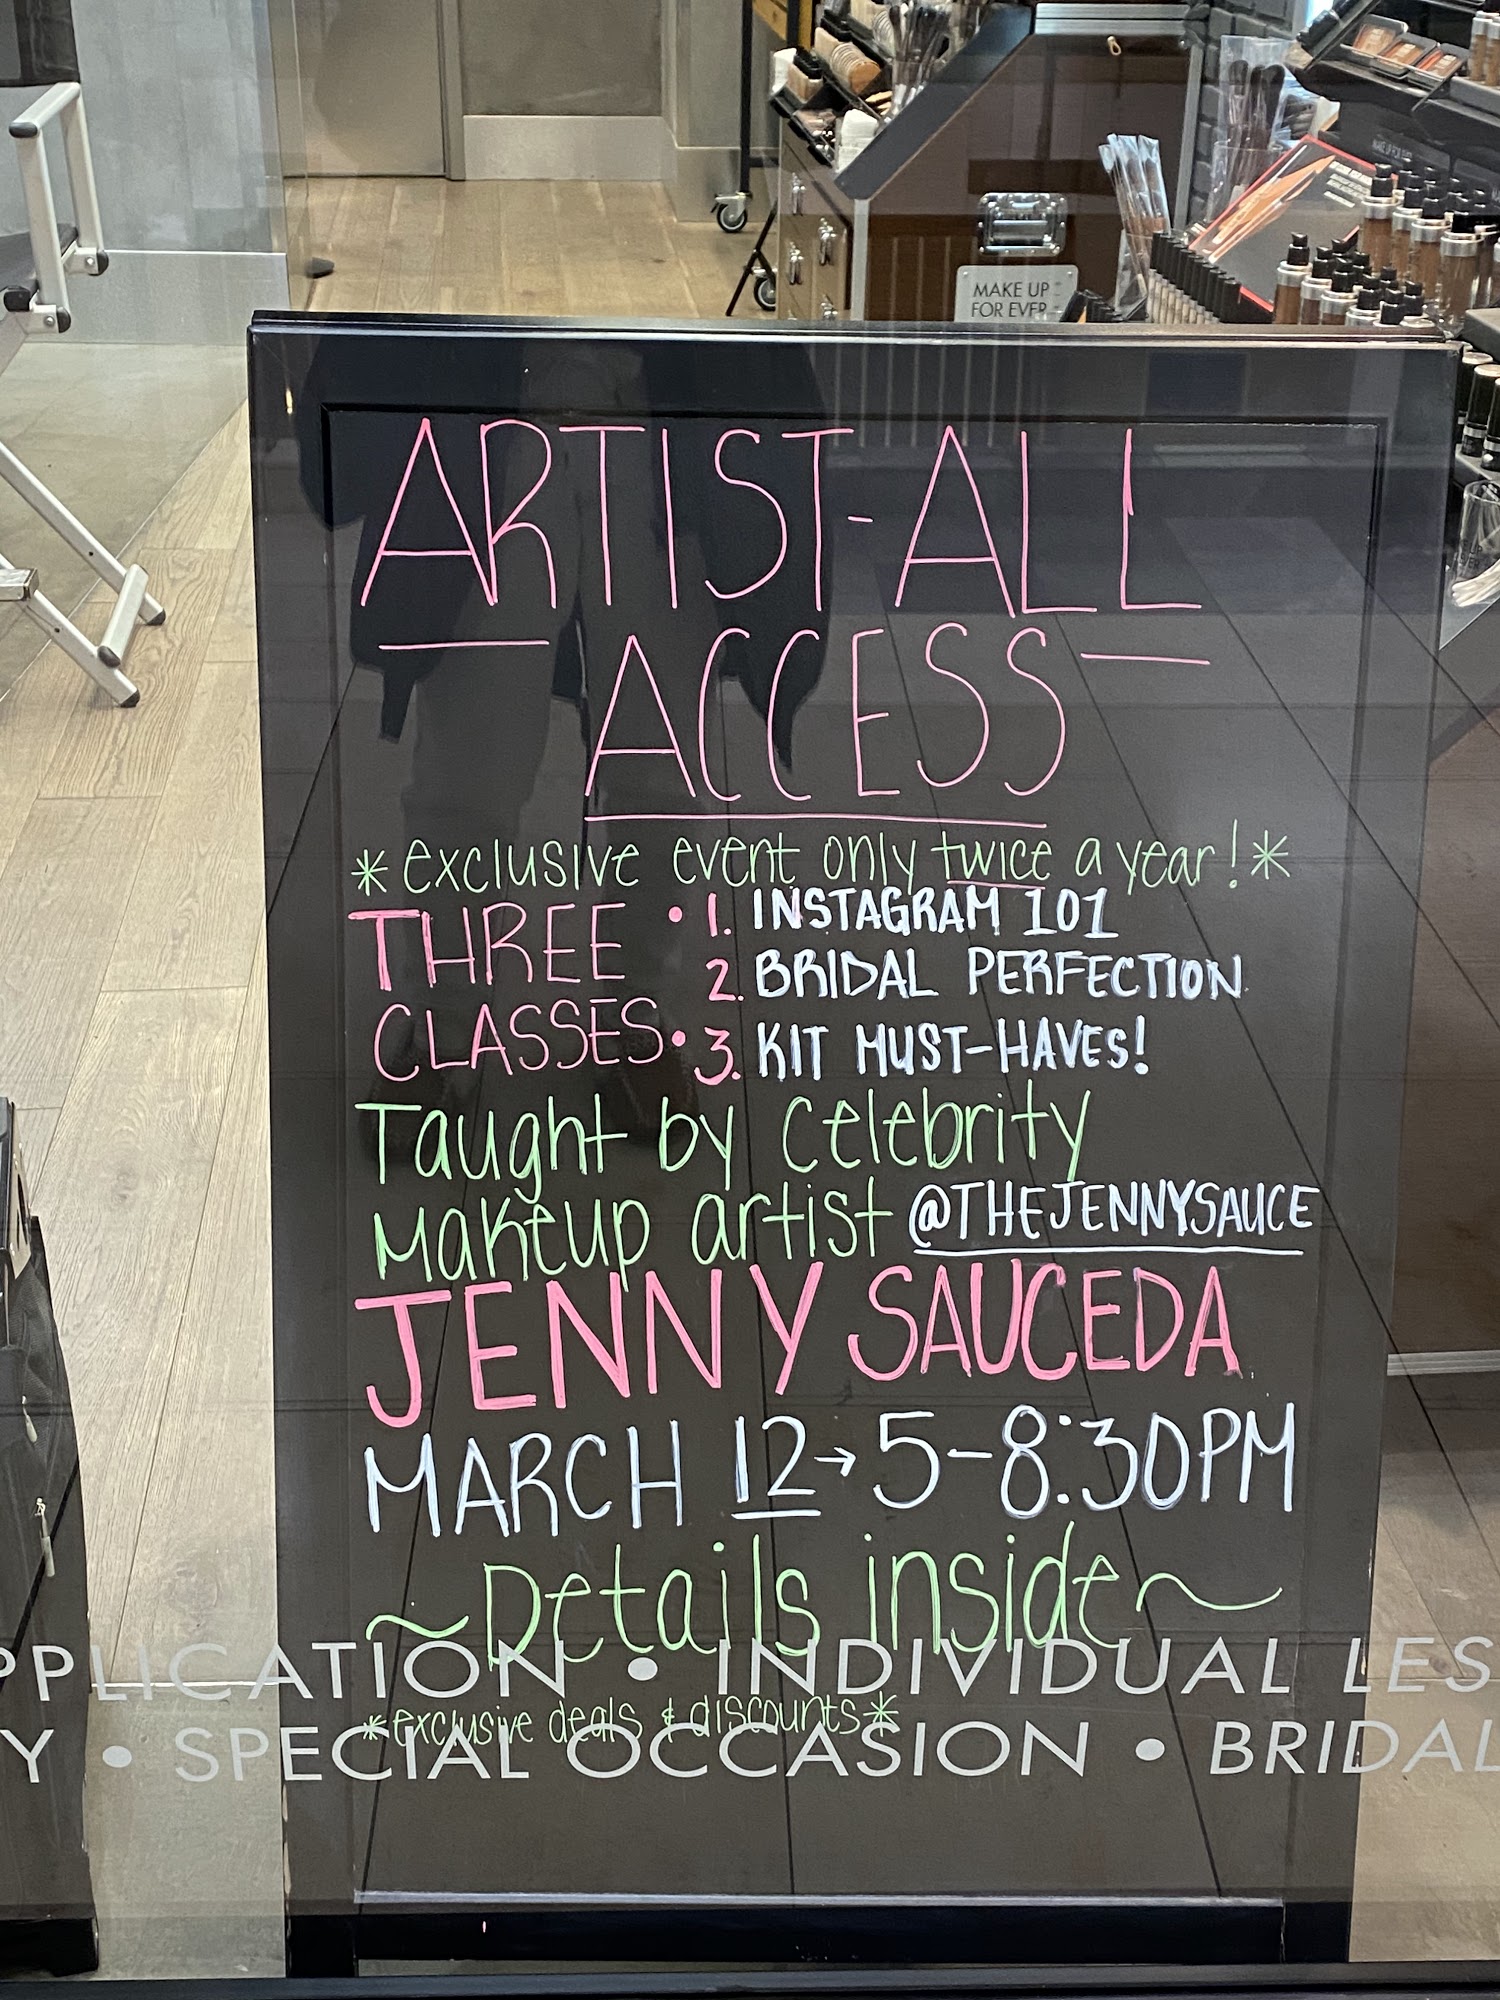 MAKE UP
FOR EVER
ARTIST-ALL
— ACCESS —
*exclusive event only twice a year!*
THREE
CLASSES
• 1. INSTAGRAM 101
2. BRIDAL PERFECTION
• 3. KIT MUST-HAVES!
Taught by celebrity
makeup artist @THEJENNYSAUCE
JENNY SAUCEDA
MARCH 12→5-8:30PM
~Details inside~
PPLICATION • INDIVIDUAL LES
*exclusive deals & discounts*
Y • SPECIAL OCCASION • BRIDAL